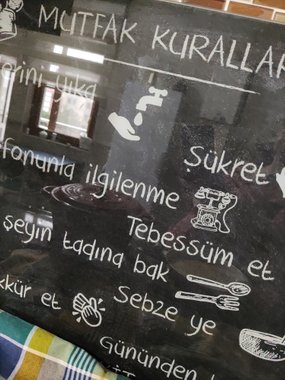 MUTFAK KURALLAR
erini yıka
Şükret
fonunla ilgilenme
Tebessüm et
şeyin tadına bak
Sebze ye
kkür et
Gününden b